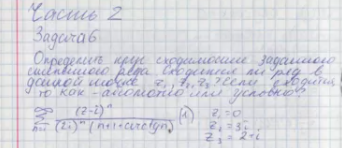 Часть 2
Задача 6
Определить круг сходимости заданного
степенного ряда. Сходится ли ряд в
данной точке z₁, z₂, z₃? Если сходится
то как - абсолютно или условно?
∞ Σ n=1 (z-i)ⁿ / (2i)ⁿ (n+1+arctg n) (1) z₁=0
z₂=3i
z₃=2+i